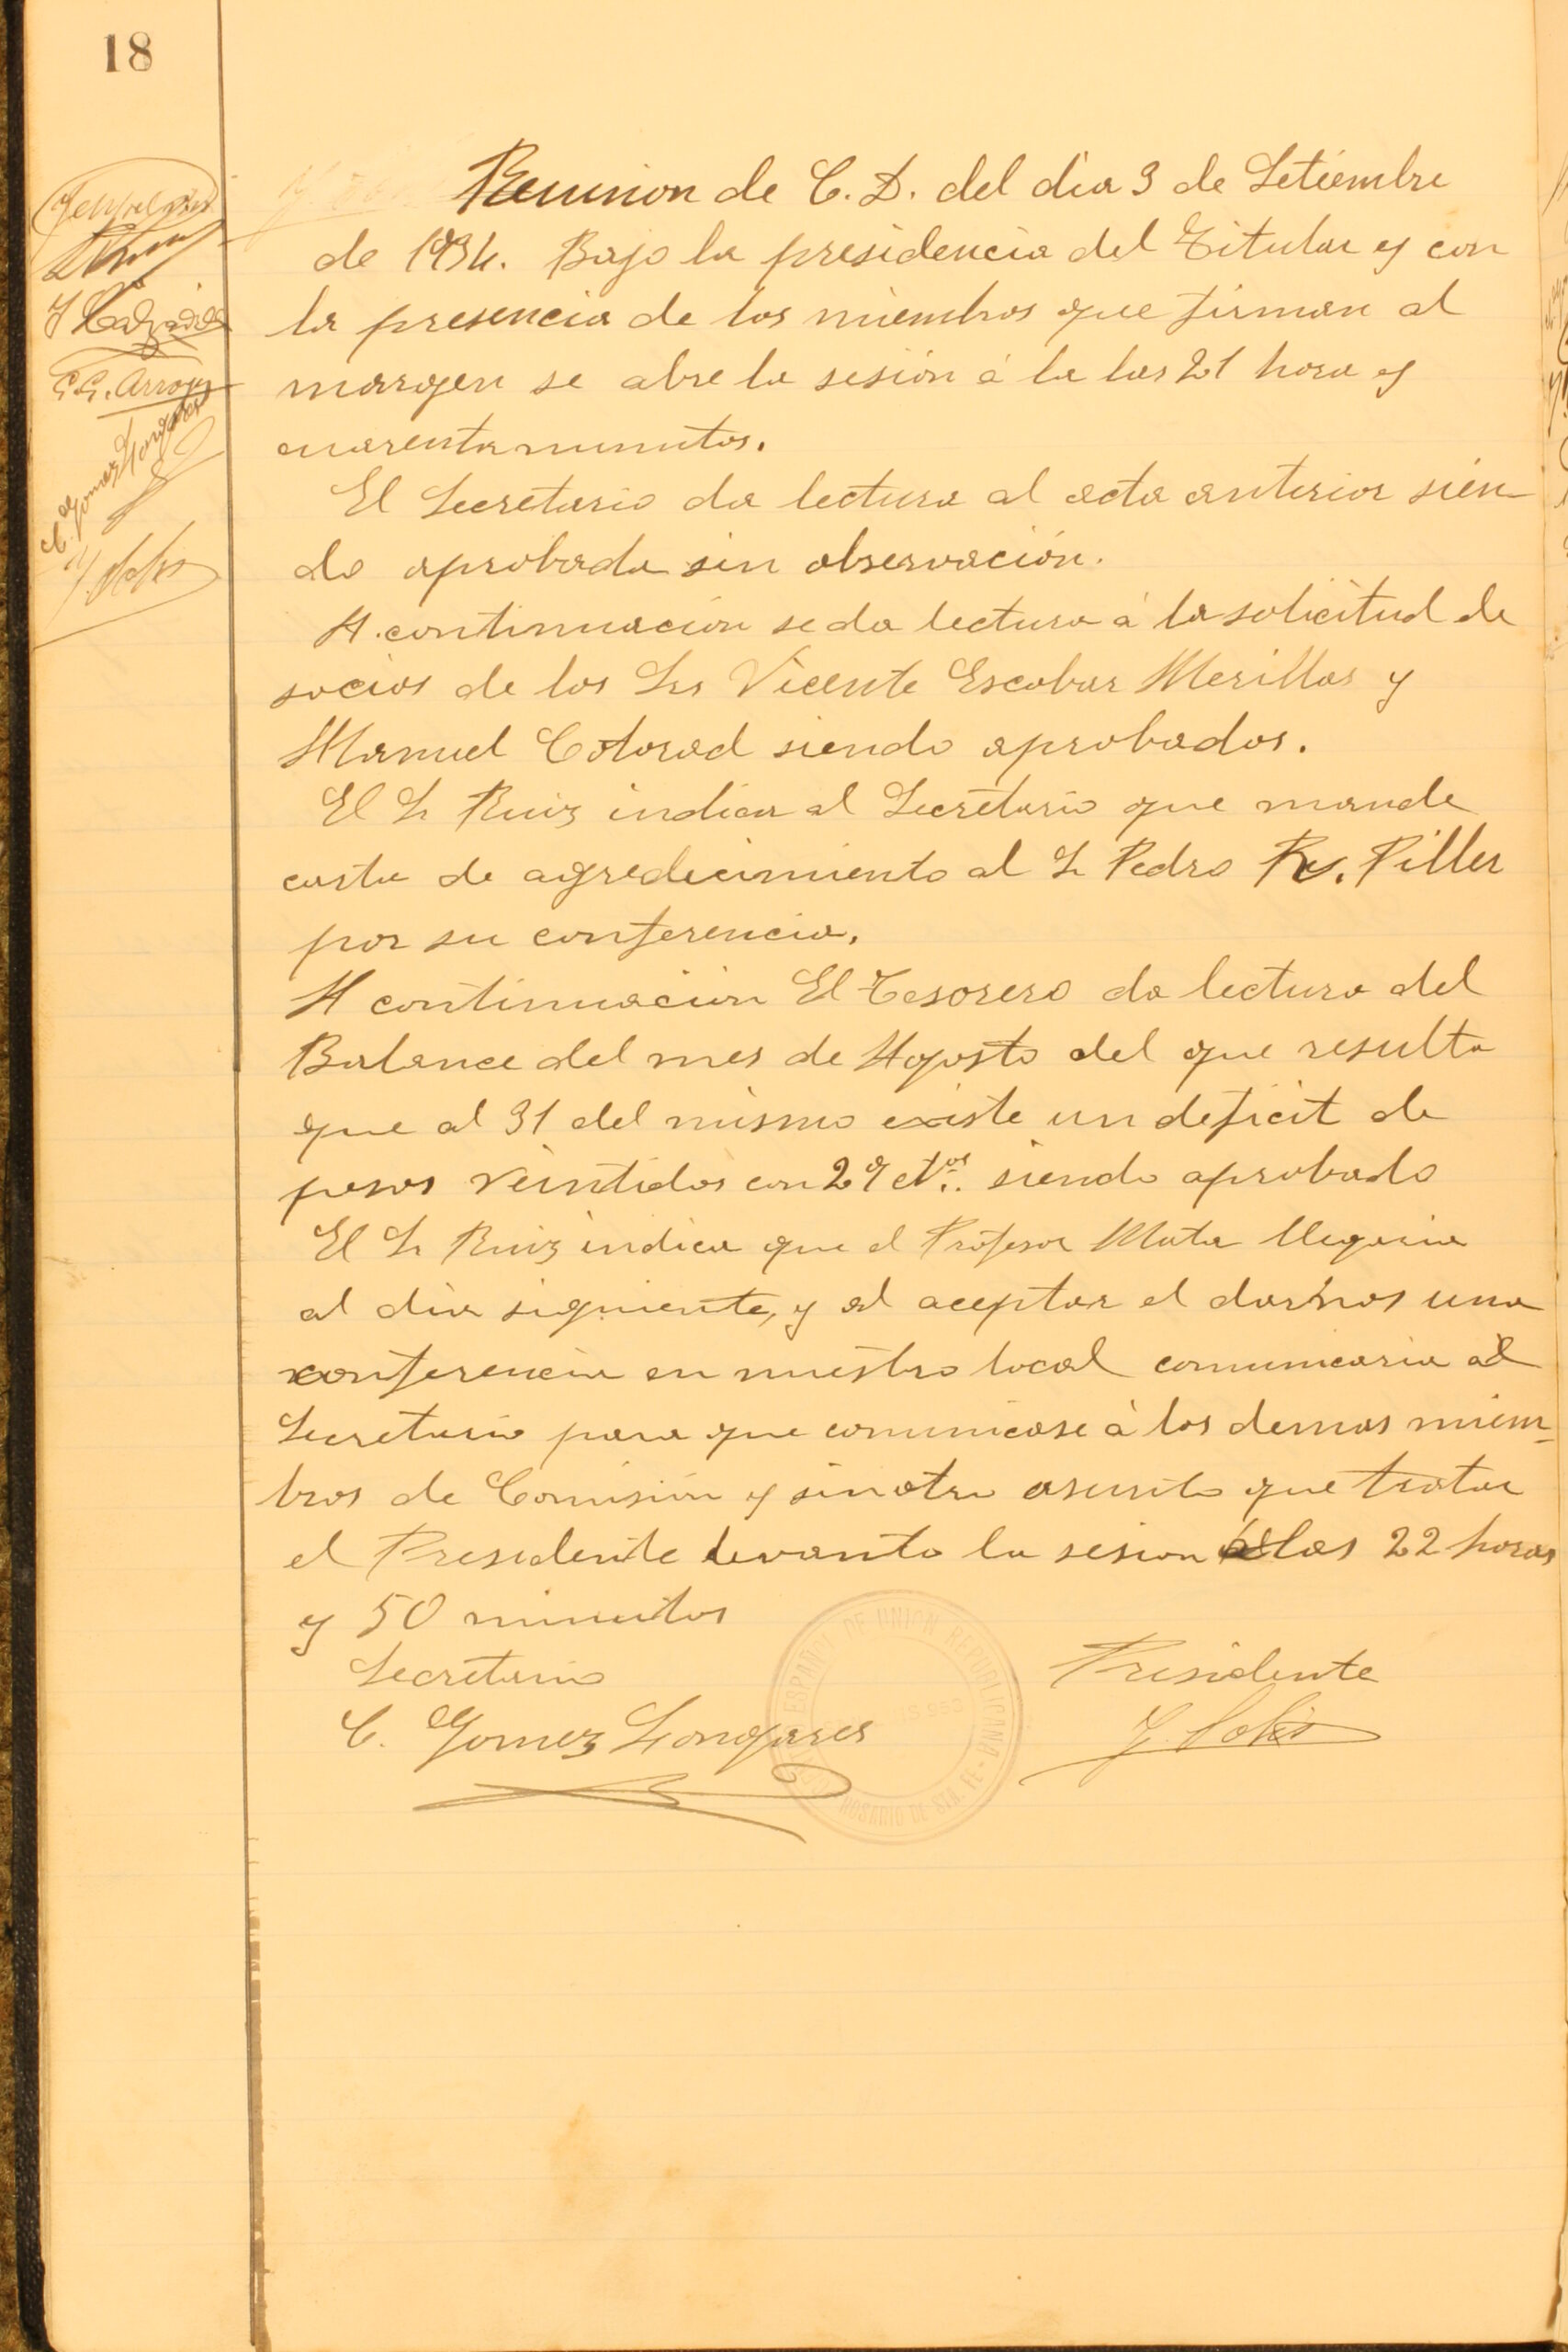 18
Reunion de C. D. del dia 3 de Setiembre
de 1934. Bajo la presidencia del Titular y con
la presencia de los miembros que firman al
margen se abre la sesión á la las 21 hora y
cuarenta minutos.
El Secretario da lectura al acta anterior sien-
do aprobada sin observación.
A continuacion se da lectura á la solicitud de
socios de los Srs Vicente Escobar Merillas y
Manuel Colorad siendo aprobados.
El Sr Ruiz indica al Secretario que mande
carta de agredecimiento al Sr Pedro Piller
por su conferencia.
A continuacion El Tesorero da lectura del
Balance del mes de Agosto del que resulta
que al 31 del mismo existe un deficit de
pesos veintidos con 29 ctvos. siendo aprobado
El Sr Ruiz indica que el Profesor Mata llegaria
al dia siguiente, y al aceptar el darnos una
conferencia en nuestro local comunicaria al
Secretario para que comunicase á los demas miem-
bros de Comisión y sin otro asunto que tratar
el Presidente levanto la sesion a las 22 horas
y 50 minutos
Secretario
Presidente
C. Gomez Longares
J. Solis
G. G. Arroyo
C. Gomez Longares
ESPAÑOL DE UNION REPUBLICANA
ROSARIO DE STA. FE